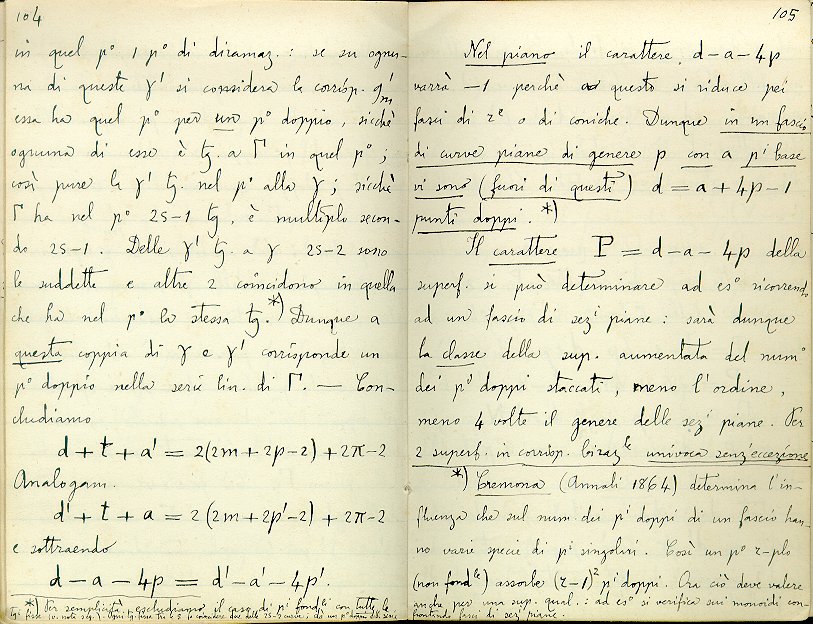 104
in quel p° 1 p° di diramaz.: se su ognu-
na di queste γ' si considera la corrisp. g'm
essa ha quel p° per un p° doppio, sicchè
ognuna di esse è tg. a Γ in quel p°;
così pure la γ' tg. nel p° alla γ; sicchè
Γ ha nel p° 2s-1 tg., è multiplo secon-
do 2s-1. Delle γ' tg. a γ 2s-2 sono
le suddette e altre 2 coincidono in quella
che ha nel p° la stessa tg.*) Dunque a
questa coppia di γ e γ' corrisponde un
p° doppio nella serie lin. di Γ. — Con-
cludiamo
d + t + a' = 2(2m + 2p - 2) + 2π - 2
Analogam.
d' + t + a = 2(2m + 2p' - 2) + 2π - 2
e sottraendo
d - a - 4p = d' - a' - 4p'.
*) Per semplicità escludiamo il caso di pⁱ fondˡⁱ con tutte le
105
Nel piano il carattere d - a - 4p
varrà -1 perchè a questo si riduce pei
fasci di rᵉ o di coniche. Dunque in un fascio
di curve piane di genere p con a pⁱ base
vi sono (fuori di questi) d = a + 4p - 1
punti doppi.*)
Il carattere P = d - a - 4p della
superf. si può determinare ad es° ricorrendo
ad un fascio di sezⁱ piane: sarà dunque
la classe della sup. aumentata del num°
dei pⁱ doppi staccati, meno l'ordine,
meno 4 volte il genere delle sezⁱ piane. Per
2 superf. in corrisp. birazˡᵉ univoca senz'eccezione
*) Cremona (Annali 1864) determina l'in-
fluenza che sul num. dei pⁱ doppi di un fascio han-
no varie specie di pⁱ singolari. Così un p° r-plo
(non fondˡᵉ) assorbe (r-1)² pⁱ doppi. Ora ciò deve valere
anche per una sup. qual.: ad es° si verifica sui monoidi con-
frontando fasci di sezⁱ piane.